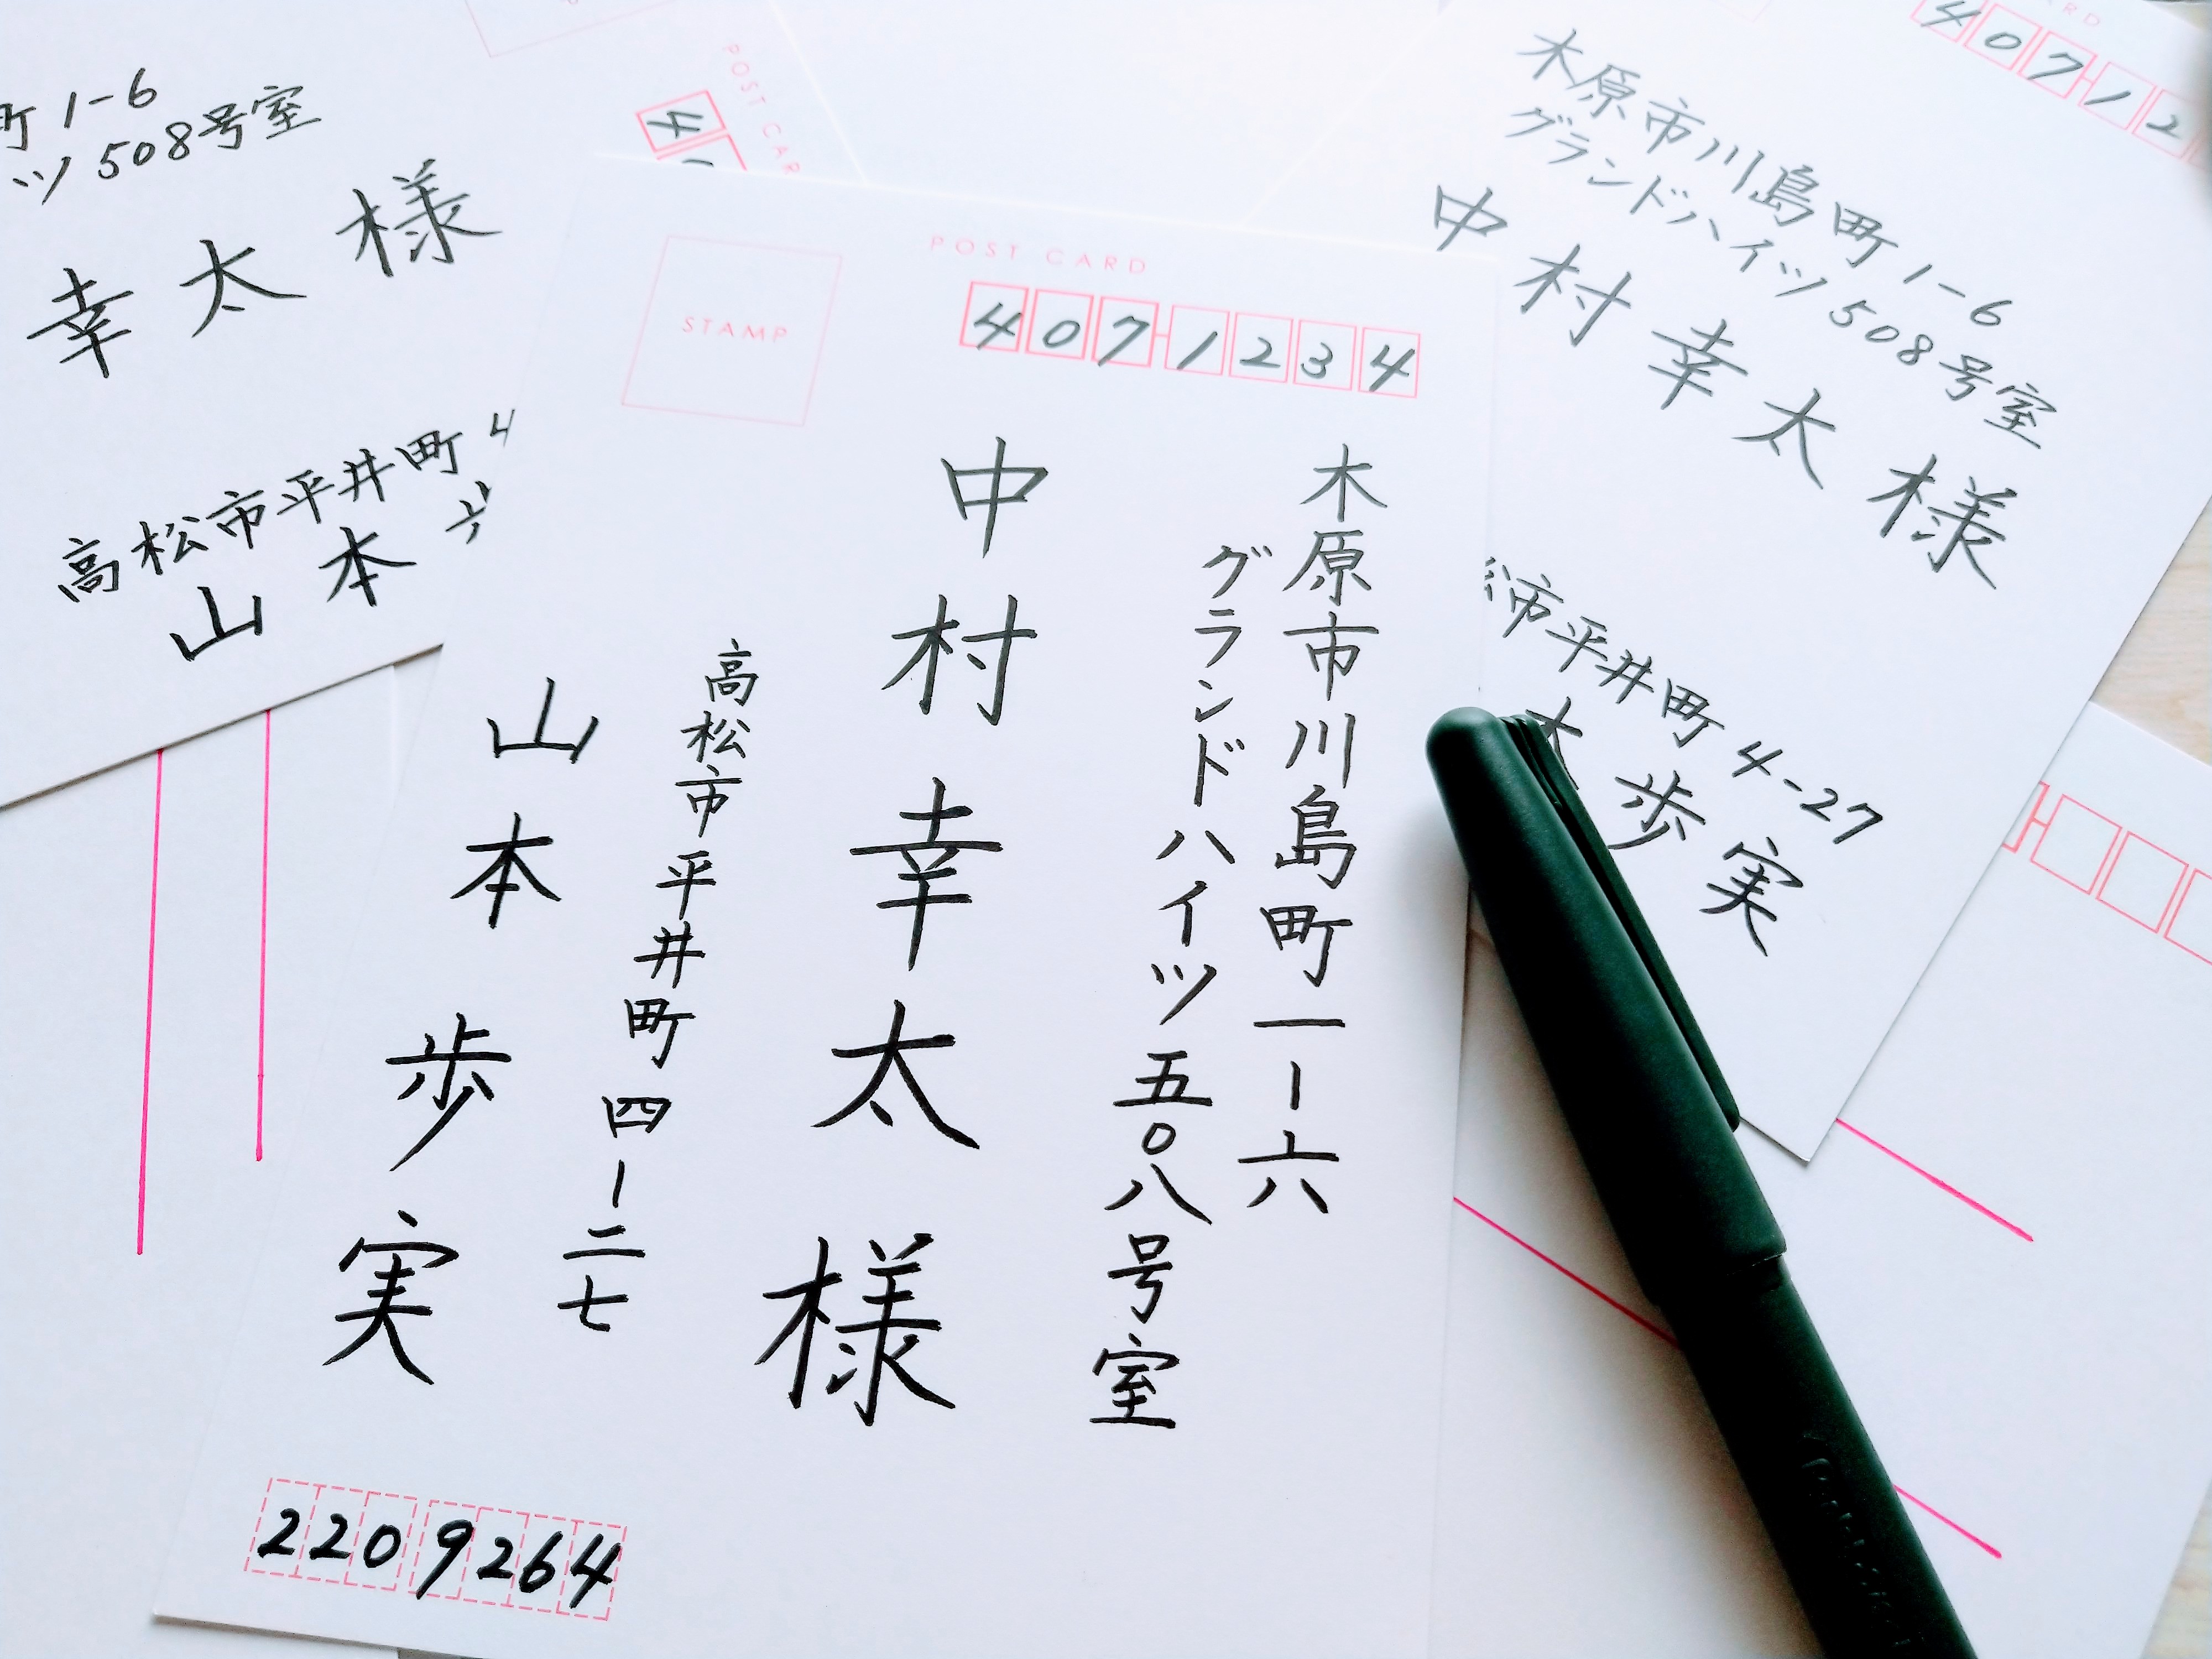 町 1-6
ツ 508号室
幸太 様
高松市平井町 4
山本
POST CARD
4
POST CARD
STAMP
4071234
木原市川島町一-六
グランドハイツ五〇八号室
中村幸太様
高松市平井町四-二七
山本歩実
2209264
40712
木原市川島町 1-6
グランドハイツ 508号室
中村幸太様
市平井町 4-27
本歩実